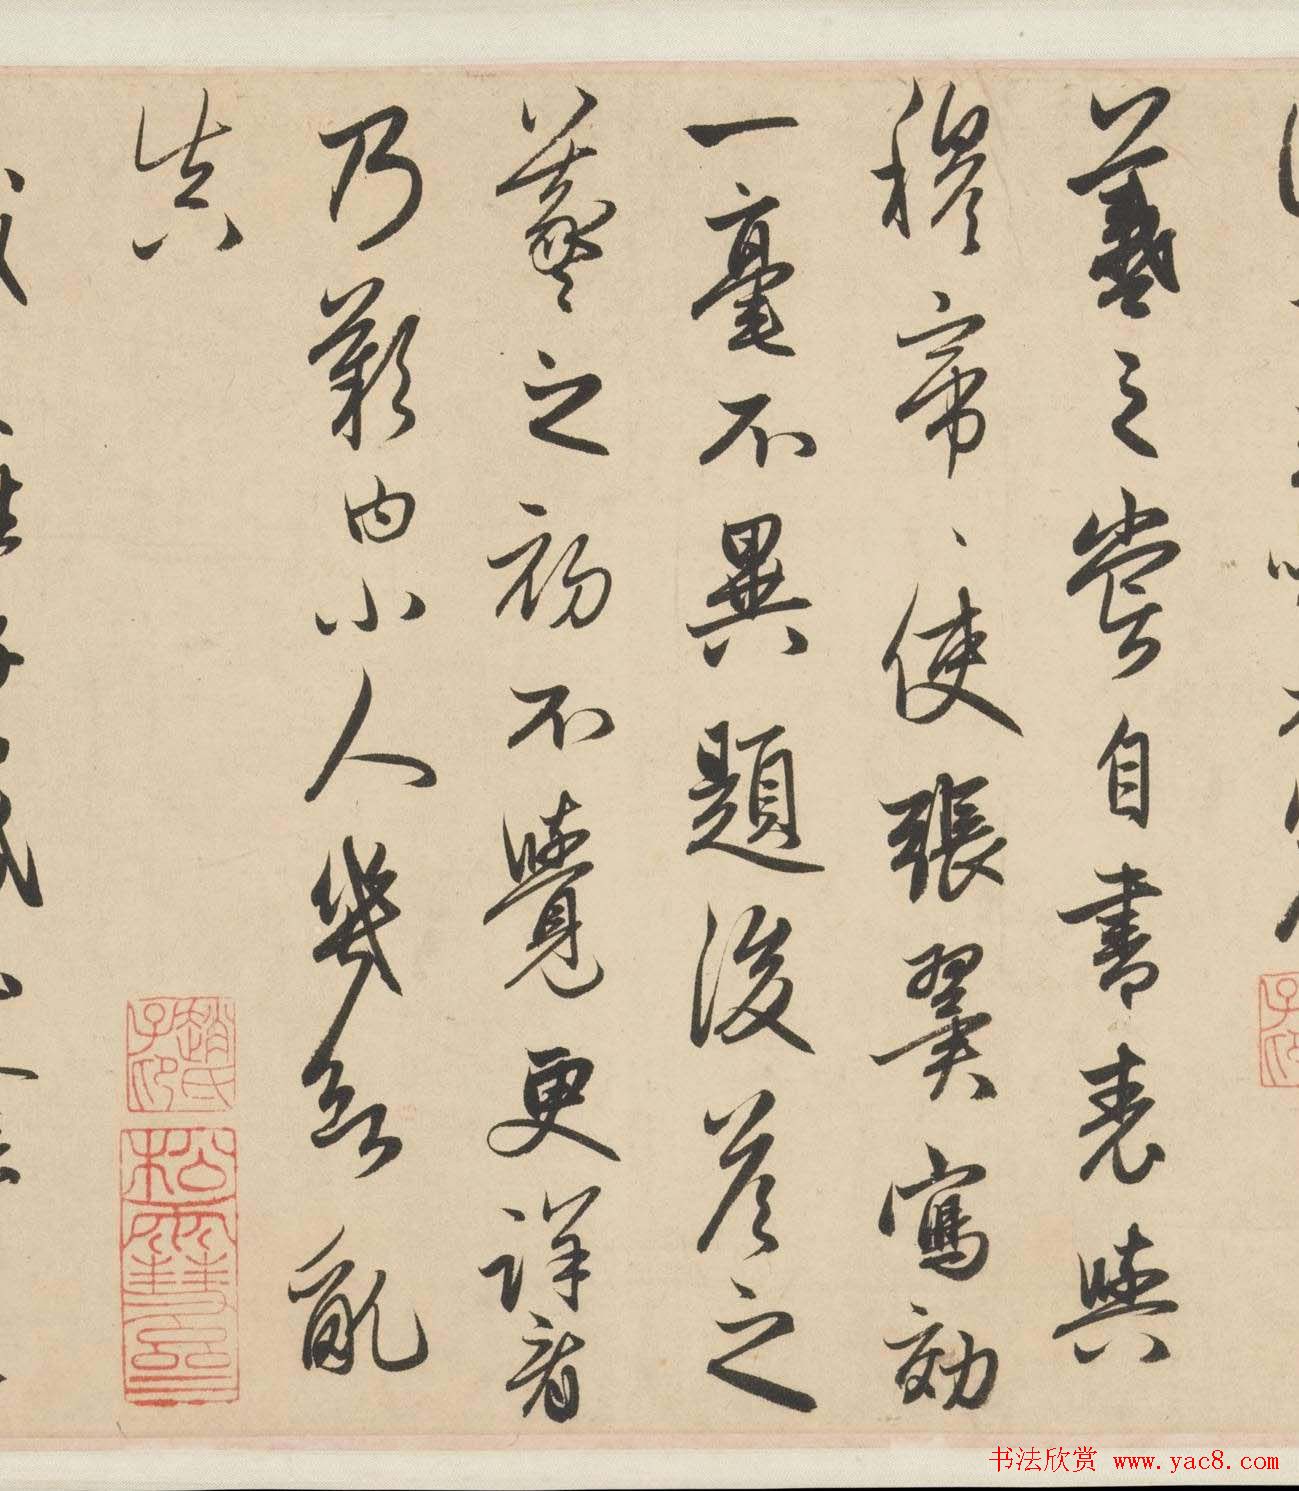 羲之嘗自書表與
穆帝、使張翼寫効
一毫不異題後答之
羲之初不覺更詳看
乃歎曰小人幾欲亂
真
趙氏子印
松雪齋
书法欣赏 www.yac8.com